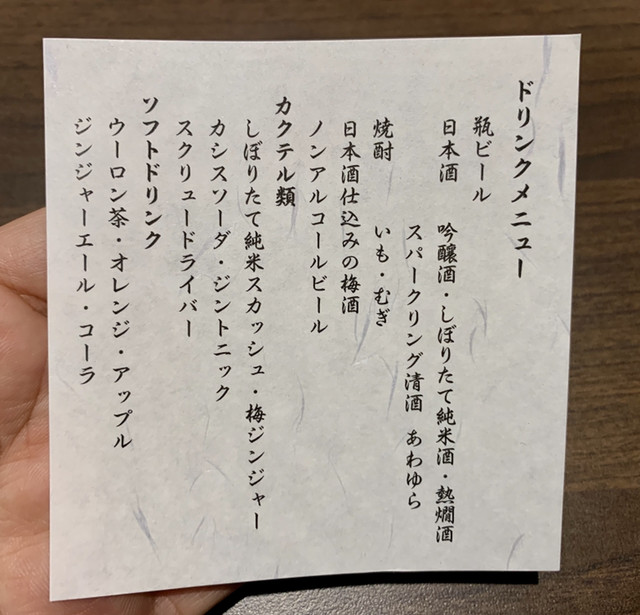 ドリンクメニュー
瓶ビール
日本酒　吟醸酒・しぼりたて純米酒・熱燗酒
スパークリング清酒　あわゆら
焼酎　いも・むぎ
日本酒仕込みの梅酒
ノンアルコールビール
カクテル類
しぼりたて純米スカッシュ・梅ジンジャー
カシスソーダ・ジントニック
スクリュードライバー
ソフトドリンク
ウーロン茶・オレンジ・アップル
ジンジャーエール・コーラ